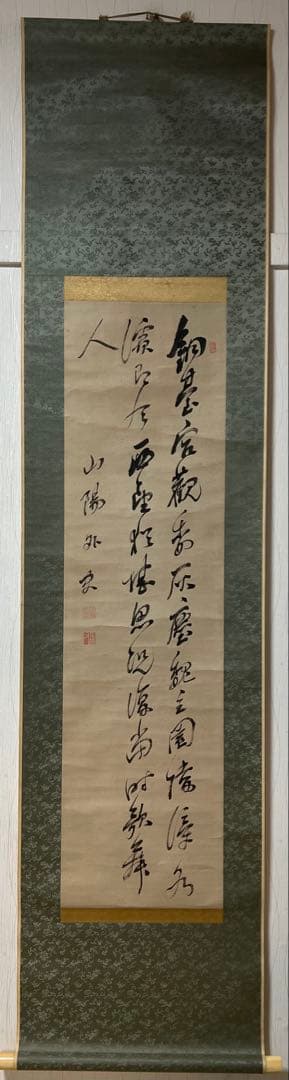 銅臺宮觀委灰塵魏主園陵漳水
濱即今西望猶堪思況復當時歌舞
人
山陽外史